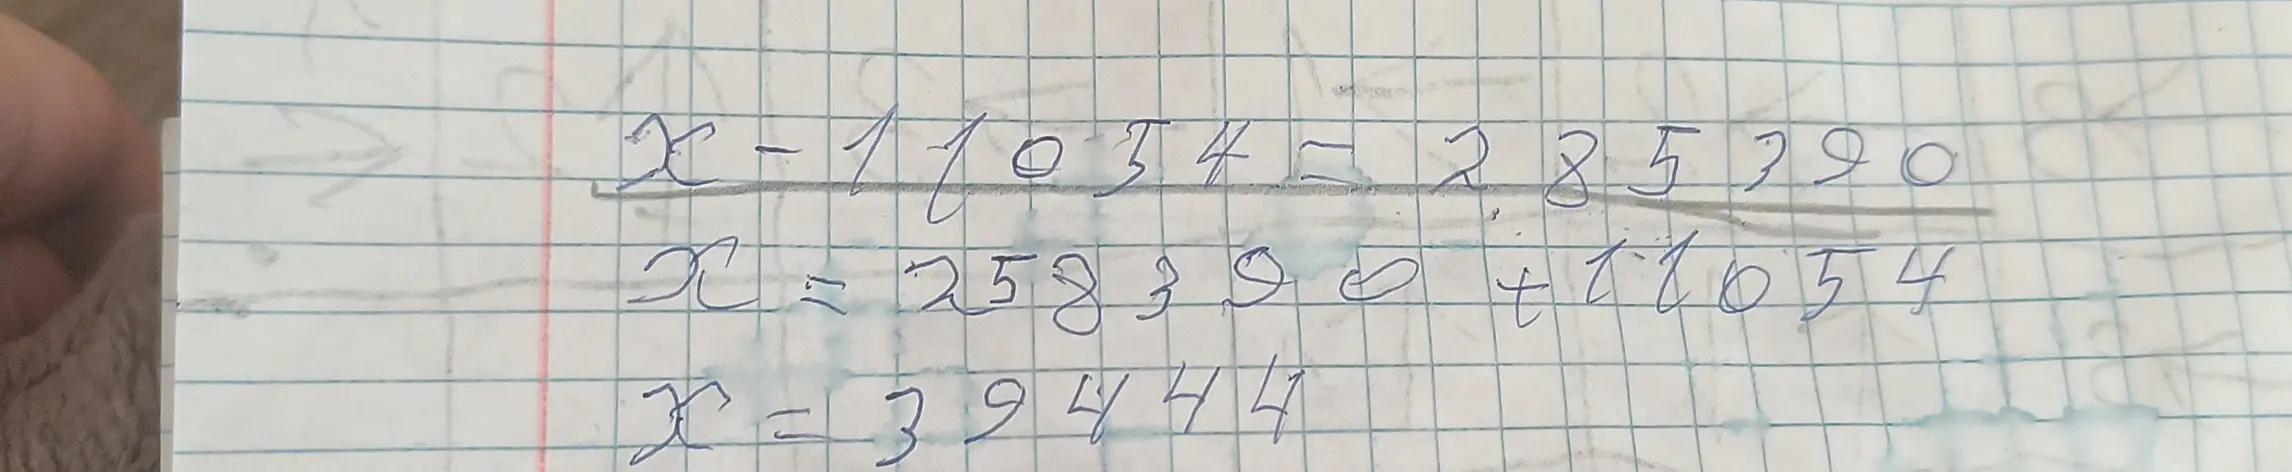 x - 11054 = 285390
x = 258390 + 11054
x = 39444